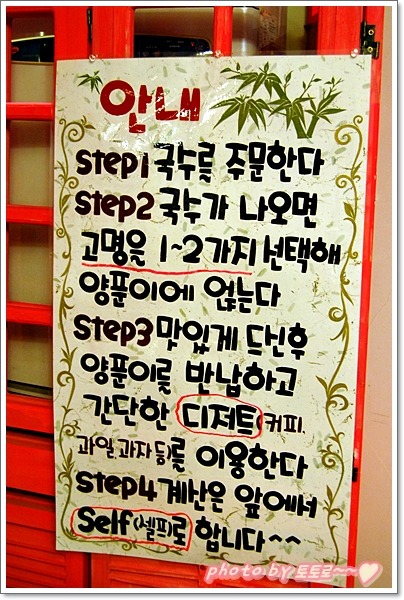 안내
step1 국수를 주문한다
step2 국수가 나오면
고명을 1~2가지 선택해
양푼이에 얹는다
step3 맛있게 드신후
양푼이를 반납하고
간단한 디저트(커피,
과일,과자 등)를 이용한다
step4 계산은 앞에서
Self(셀프)로 합니다^^
photo by 토토로~~♥